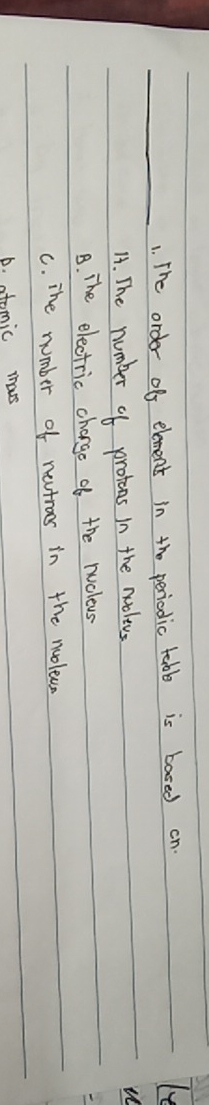 1. The order of element in the periodic table is based on.
A. The number of protons in the nucleus
B. The electric charge of the nucleus
C. The number of neutrons in the nucleus
D. atomic mass